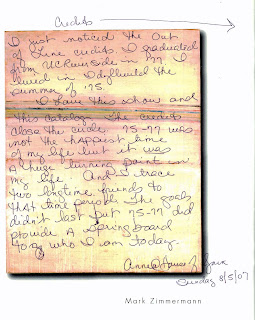 Credits
I just noticed the out
of line credits. I graduated
from UC Riverside in '77. I
lived in Idyllwild the
summer of '75.
I love this show and
this catalog. The credits
close the circle. 75-77 was
not the happiest time
of my life but it was
a huge turning point in
my life. And I trace
two longtime friends to
that time period. The goals
didn't last but 75-77 did
provide a springboard
to who I am today.
Anne
Sunday 8/5/07
Mark Zimmermann